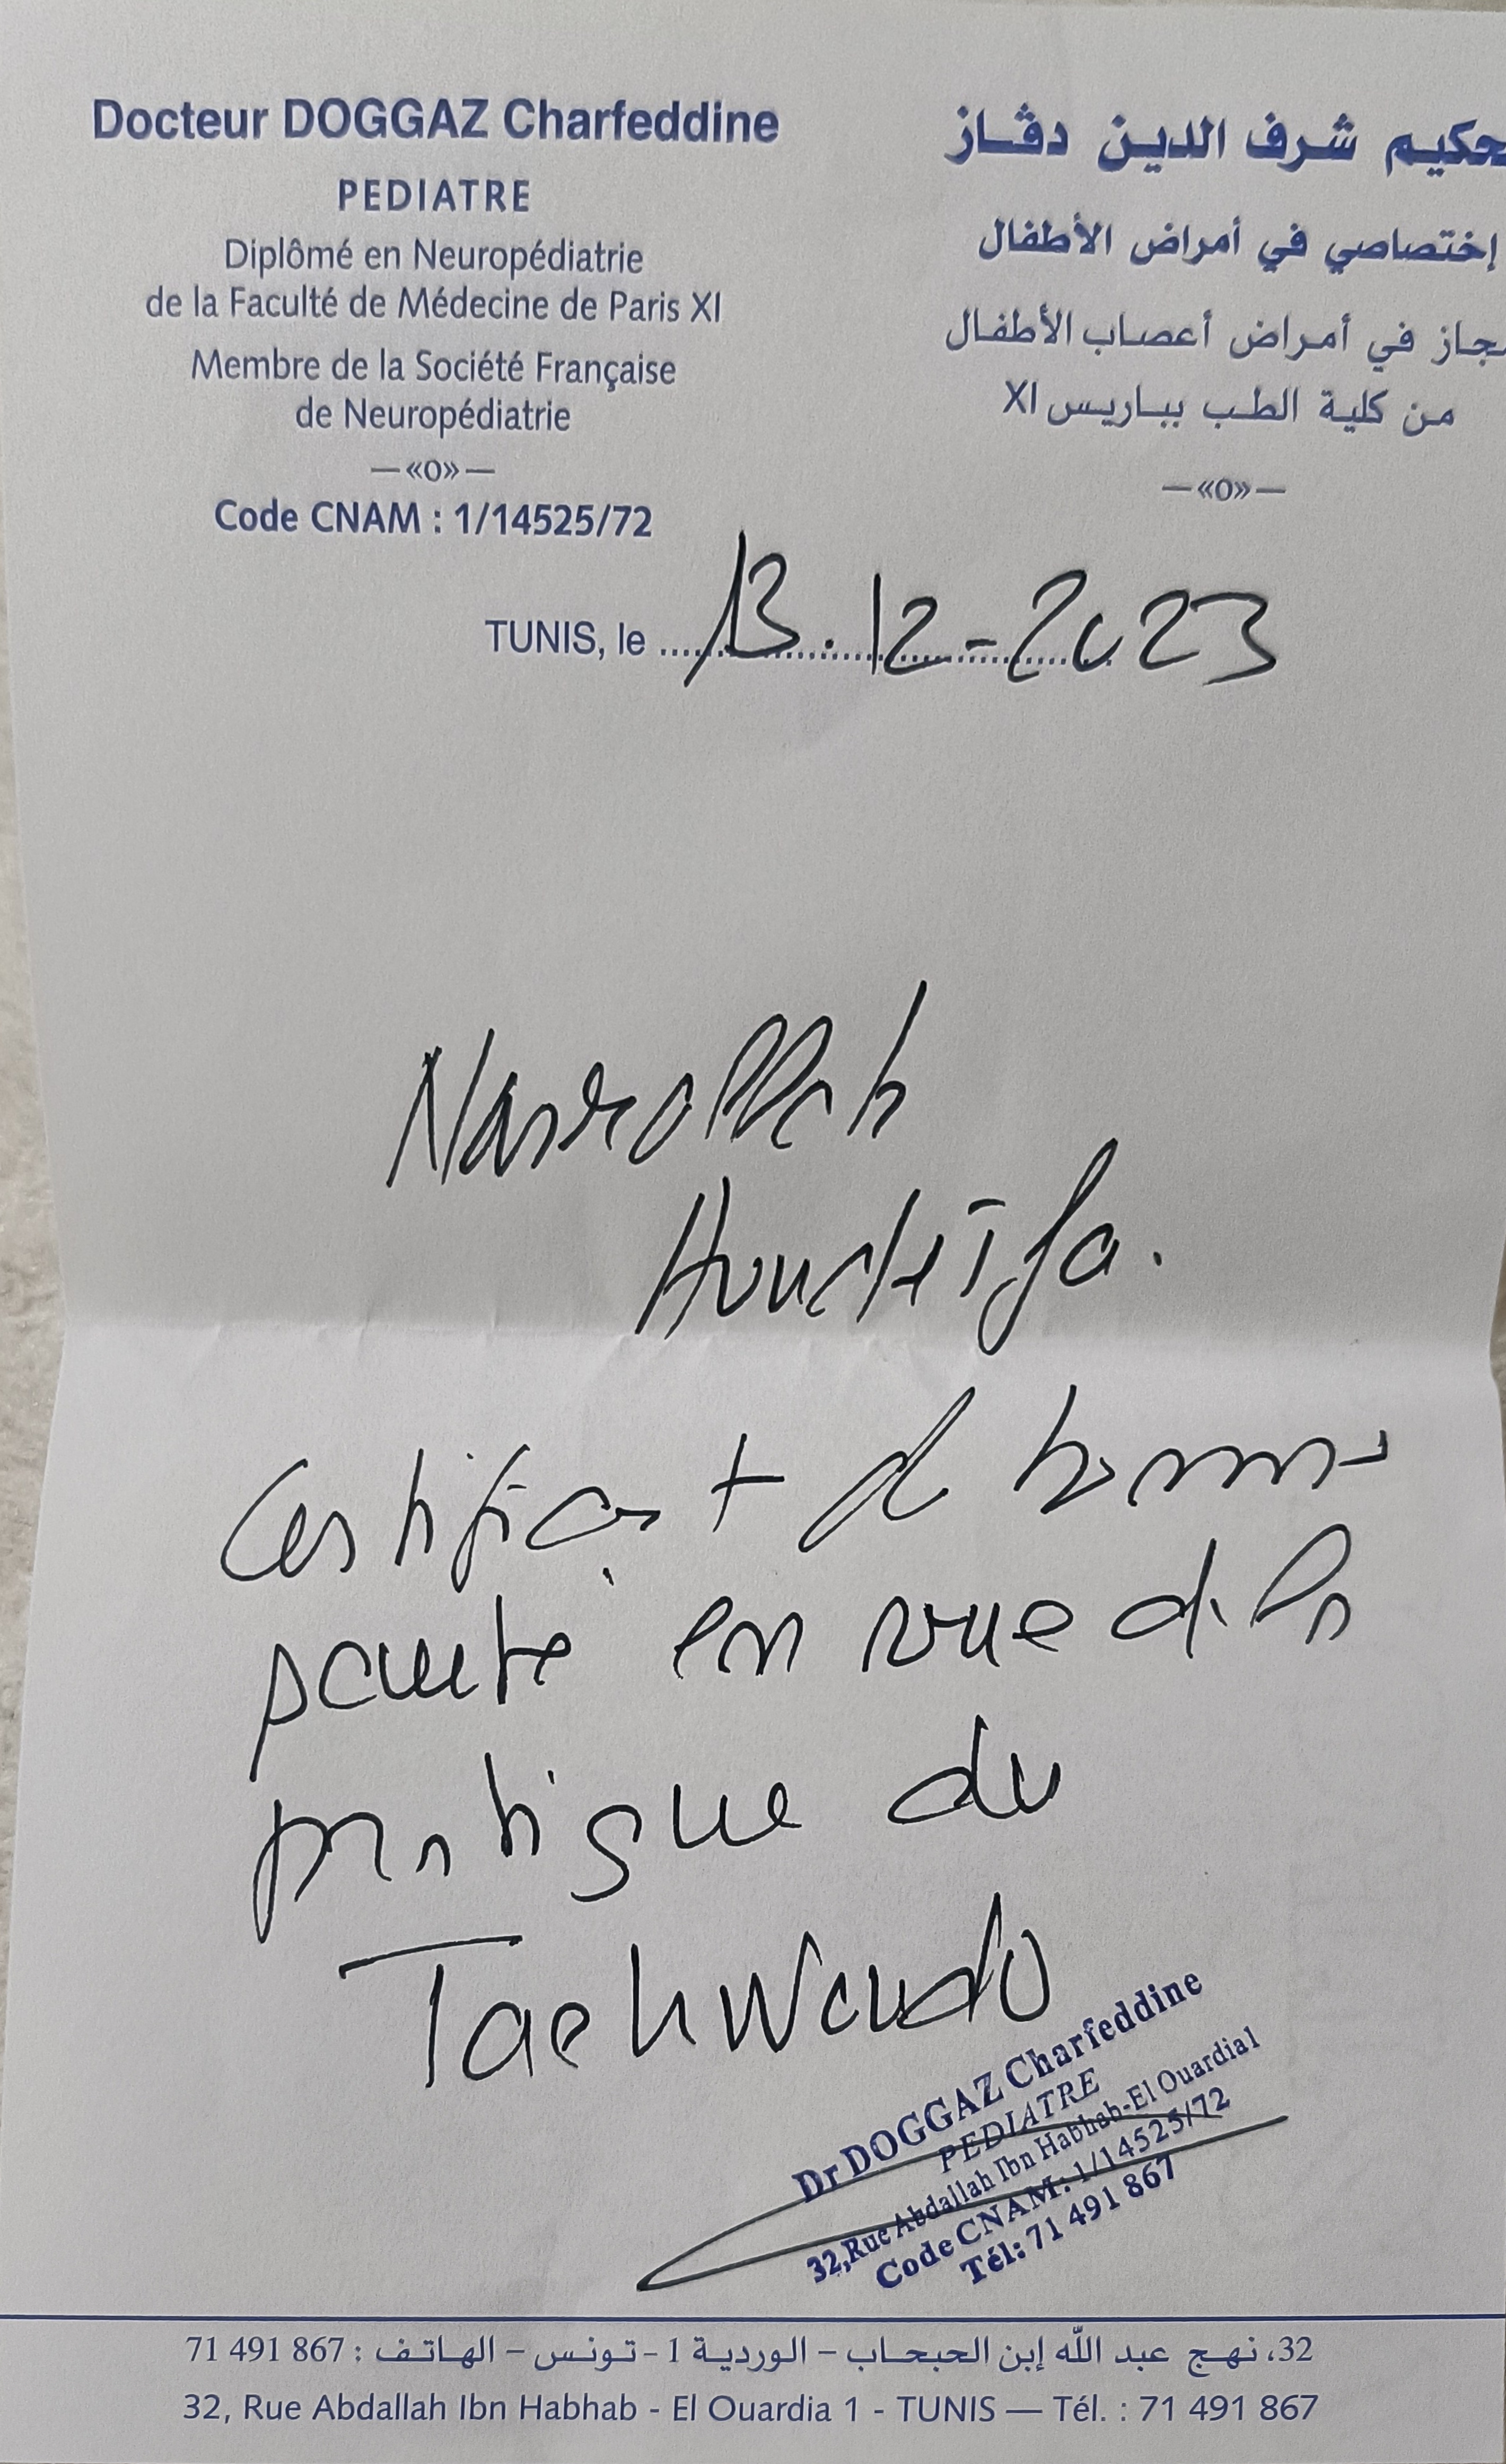 Docteur DOGGAZ Charfeddine
PEDIATRE
Diplômé en Neuropédiatrie
de la Faculté de Médecine de Paris XI
Membre de la Société Française
de Neuropédiatrie
—«O»—
Code CNAM : 1/14525/72
حكيم شرف الدين دڤاز
إختصاصي في أمراض الأطفال
مجاز في أمراض أعصاب الأطفال
من كلية الطب بباريس XI
—«O»—
TUNIS, le 13.12-2023
Nasrollah
Houdeifa.
Certificat de bonne
santé en vue de la
pratique du
Taekwondo
Dr DOGGAZ Charfeddine
PEDIATRE
32,Rue Abdallah Ibn Habhab-El Ouardia1
Code CNAM: 1/14525/72
Tél: 71 491 867
32، نهج عبد الله إبن الحبحاب – الوردية 1 - تونس – الهاتف : 867 491 71
32, Rue Abdallah Ibn Habhab - El Ouardia 1 - TUNIS — Tél. : 71 491 867